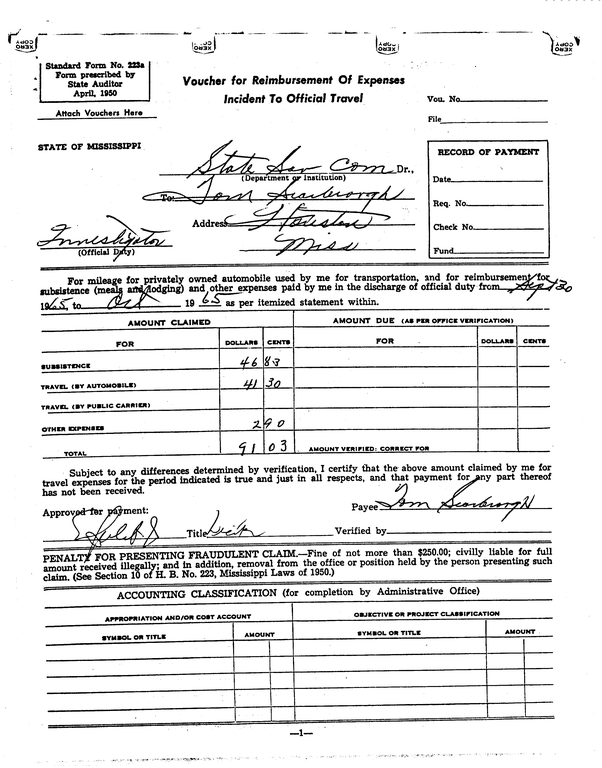 XERO COPY XERO COPY XERO COPY XERO COPY
Standard Form No. 223a
Form prescribed by
State Auditor
April, 1950
Attach Vouchers Here
Voucher for Reimbursement Of Expenses
Incident To Official Travel
Vou. No.
File
STATE OF MISSISSIPPI
State Sov Com Dr.,
(Department or Institution)
To: Tom Scarbrough
Address Houston
Miss
Investigator
(Official Duty)
RECORD OF PAYMENT
Date
Req. No.
Check No.
Fund
For mileage for privately owned automobile used by me for transportation, and for reimbursement for
subsistence (meals and lodging) and other expenses paid by me in the discharge of official duty from Sept 30
1965, to Oct 1965 as per itemized statement within.
AMOUNT CLAIMED AMOUNT DUE (AS PER OFFICE VERIFICATION)
FOR DOLLARS CENTS FOR DOLLARS CENTS
SUBSISTENCE 46 83
TRAVEL (BY AUTOMOBILE) 41 30
TRAVEL (BY PUBLIC CARRIER)
OTHER EXPENSES 2 90
TOTAL 91 03 AMOUNT VERIFIED: CORRECT FOR
Subject to any differences determined by verification, I certify that the above amount claimed by me for
travel expenses for the period indicated is true and just in all respects, and that payment for any part thereof
has not been received.
Approved for payment:
Payee Tom Scarbrough
Title Verified by
PENALTY FOR PRESENTING FRAUDULENT CLAIM.—Fine of not more than $250.00; civilly liable for full
amount received illegally; and in addition, removal from the office or position held by the person presenting such
claim. (See Section 10 of H. B. No. 223, Mississippi Laws of 1950.)
ACCOUNTING CLASSIFICATION (for completion by Administrative Office)
APPROPRIATION AND/OR COST ACCOUNT OBJECTIVE OR PROJECT CLASSIFICATION
SYMBOL OR TITLE AMOUNT SYMBOL OR TITLE AMOUNT
—1—